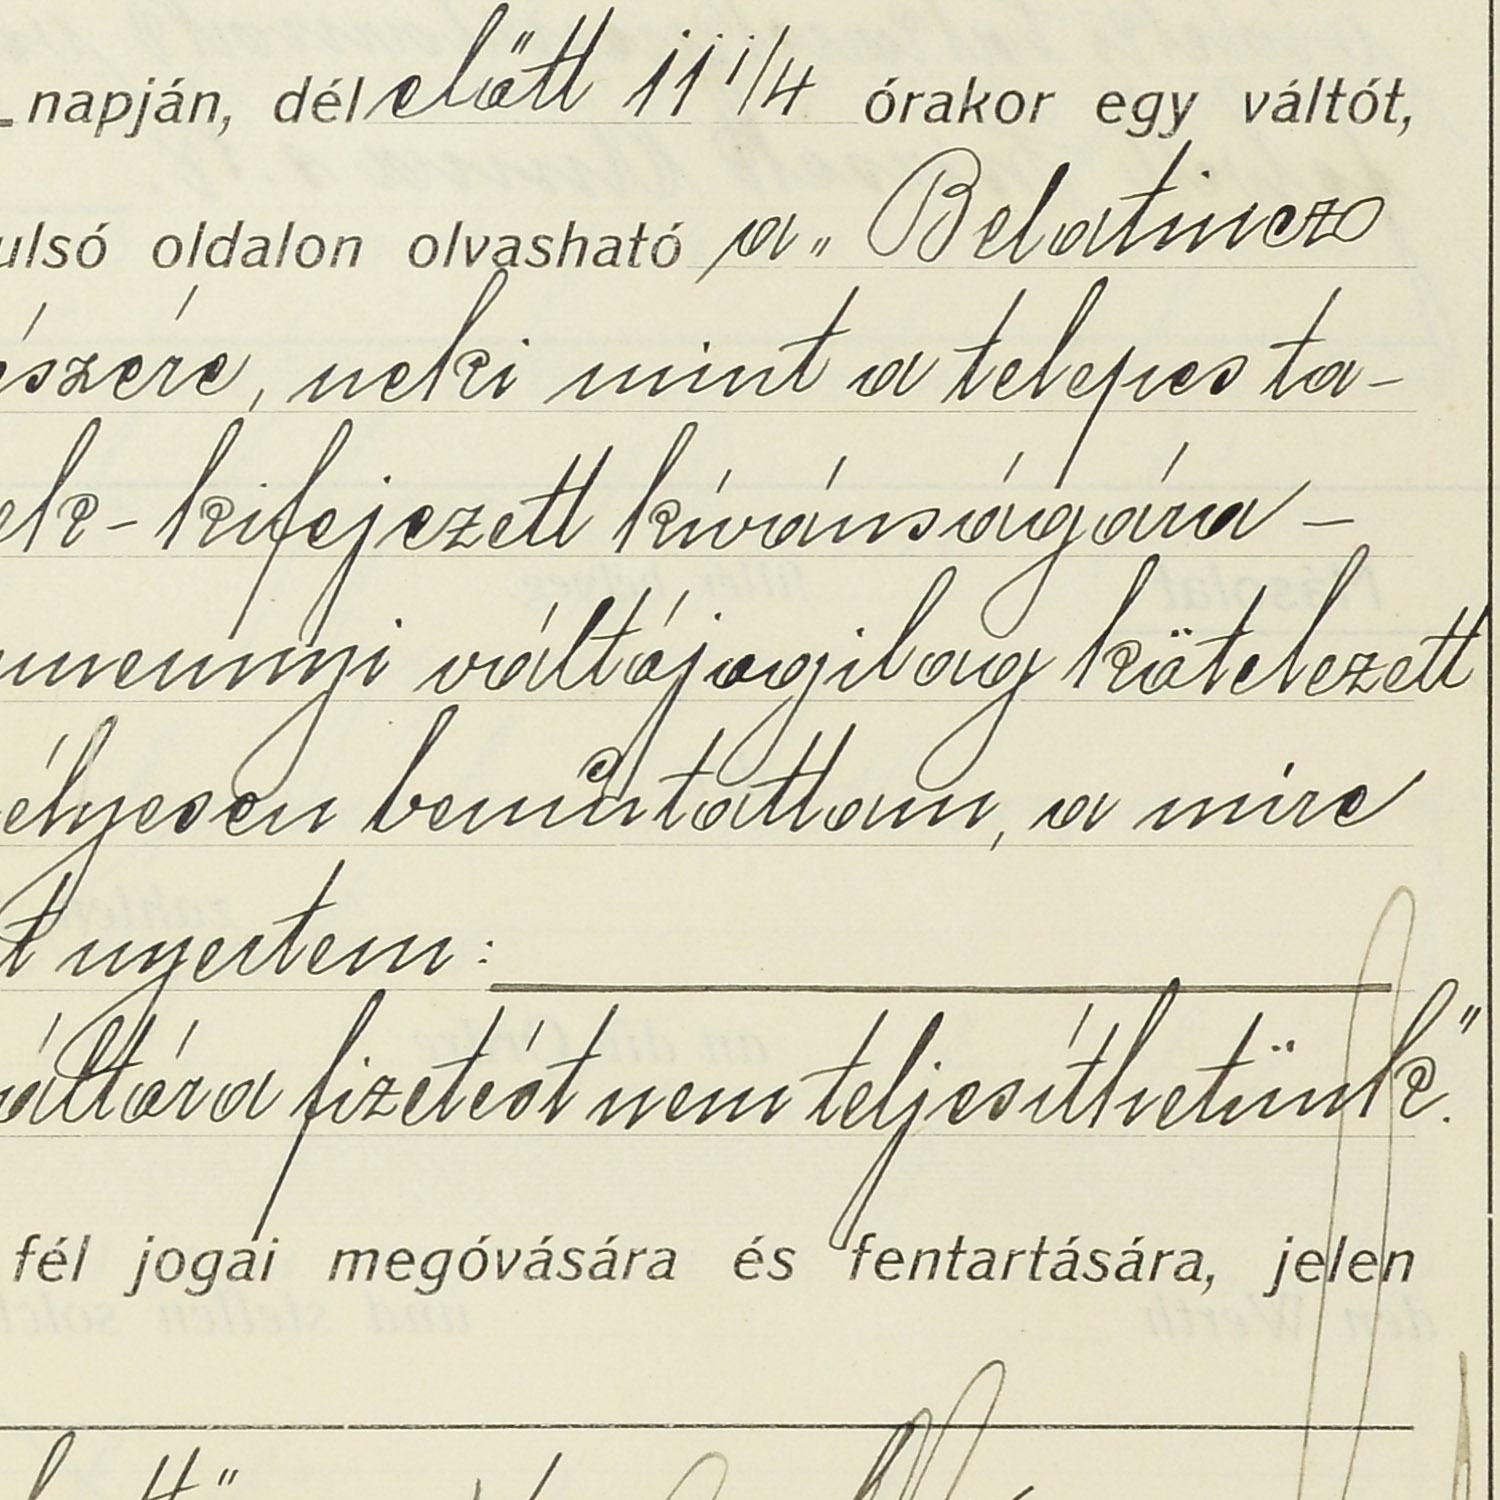 napján, délelőtt 11 1/4 órakor egy váltót,
ulsó oldalon olvasható a „Belatincz
észére, neki mint a telepes ta-
ek - kifejezett kívánságára -
mennyi váltójogilag kötelezett
élyesen bemútattam, a mire
t nyertem:
áltóra fizetést nem teljesíthetünk."
fél jogai megóvására és fentartására, jelen